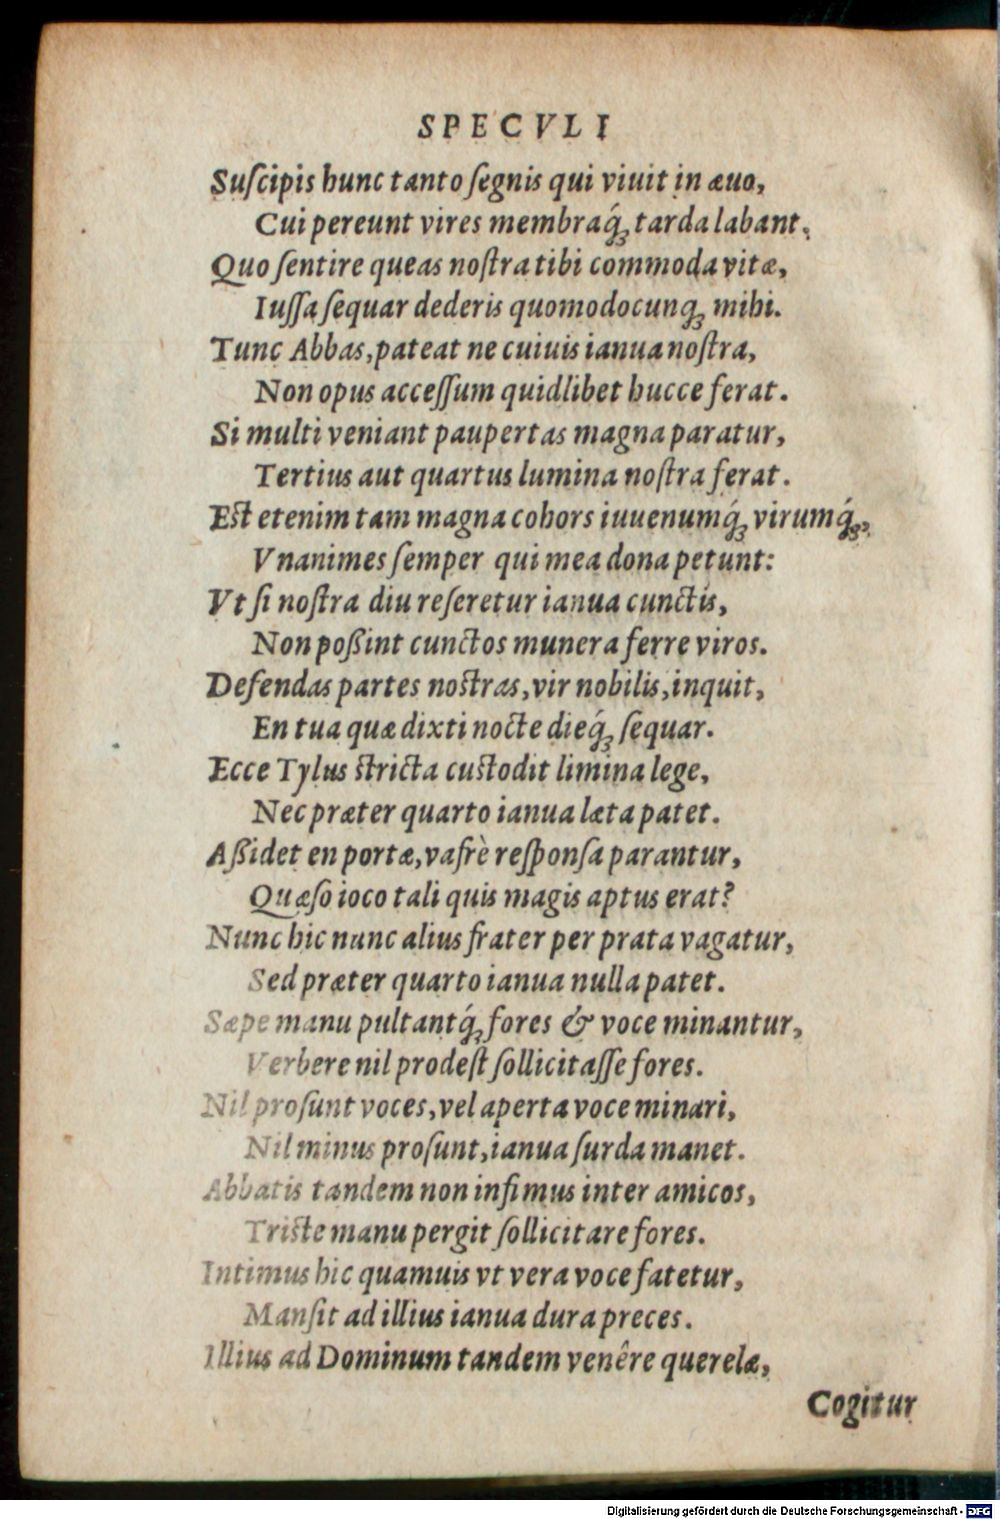 SPECVLI
Suſcipis hunc tanto ſegnis qui viuit in æuo,
Cui pereunt vires membraq́ꝫ tarda labant.
Quo ſentire queas noſtra tibi commoda vitæ,
Iuſſa ſequar dederis quomodocunqꝫ mihi.
Tunc Abbas, pateat ne cuiuis ianua noſtra,
Non opus acceſſum quidlibet hucce ferat.
Si multi veniant paupertas magna paratur,
Tertius aut quartus lumina noſtra ferat.
Eſt etenim tam magna cohors iuuenumq́ꝫ virumq́ꝫ,
Vnanimes ſemper qui mea dona petunt:
Vt ſi noſtra diu reſeretur ianua cunctis,
Non poßint cunctos munera ferre viros.
Defendas partes noſtras, vir nobilis, inquit,
En tua quæ dixti nocte dieq́ꝫ ſequar.
Ecce Tylus ſtricta cuſtodit limina lege,
Nec præter quarto ianua læta patet.
Aßidet en portæ, vafrè reſponſa parantur,
Quæſo ioco tali quis magis aptus erat?
Nunc hic nunc alius frater per prata vagatur,
Sed præter quarto ianua nulla patet.
Sæpe manu pultantq́ꝫ fores & voce minantur,
Verbere nil prodeſt ſollicitaſſe fores.
Nil proſunt voces, vel aperta voce minari,
Nil minus proſunt, ianua ſurda manet.
Abbatis tandem non infimus inter amicos,
Triſte manu pergit ſollicitare fores.
Intimus hic quamuis vt vera voce fatetur,
Manſit ad illius ianua dura preces.
Illius ad Dominum tandem venêre querelæ,
Cogitur
Digitalisierung gefördert durch die Deutsche Forschungsgemeinschaft - DFG